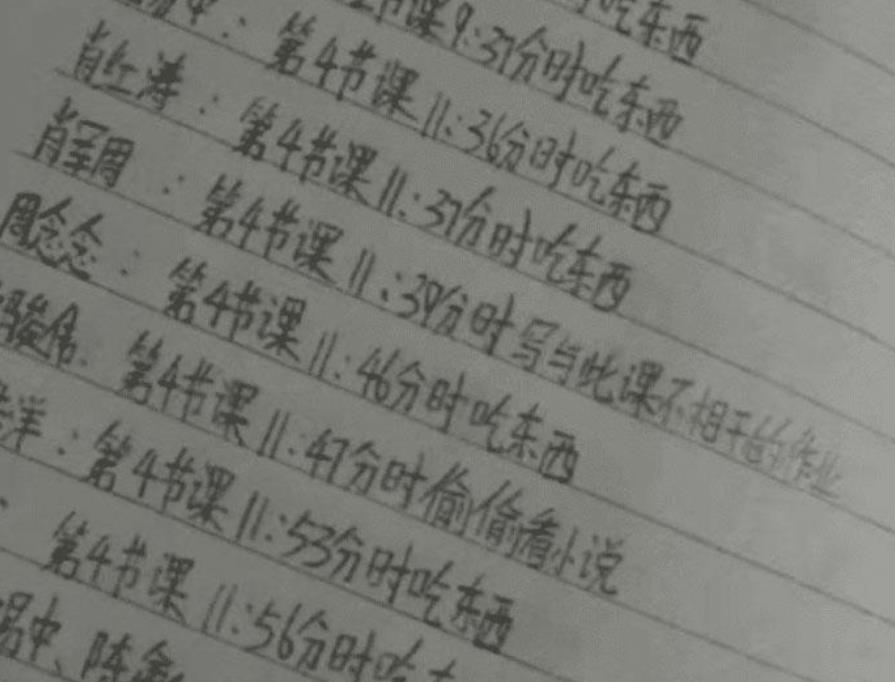 吃东西
节课9:37分时吃东西
中：第4节课11:36分时吃东西
肖红涛：第4节课11:37分时吃东西
肖周：第4节课11:39分时写与此课不相干的作业
周念念：第4节课11:46分时吃东西
骏伟：第4节课11:47分时偷偷看小说
洋：第4节课11:53分时吃东西
第4节课11:56分时吃
中、陈